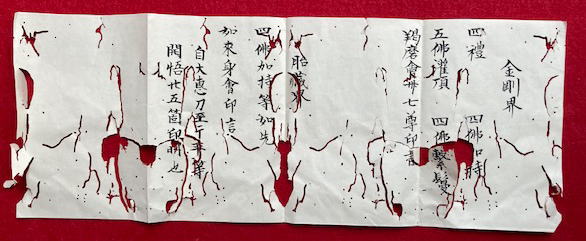 金剛界
四禮 四佛加持
五佛灌頂 四佛繫鬘
羯磨會卅七尊印言
胎藏界
四佛加持等如先
如來身會印言
自大惠刀至
開悟廿五箇印明也